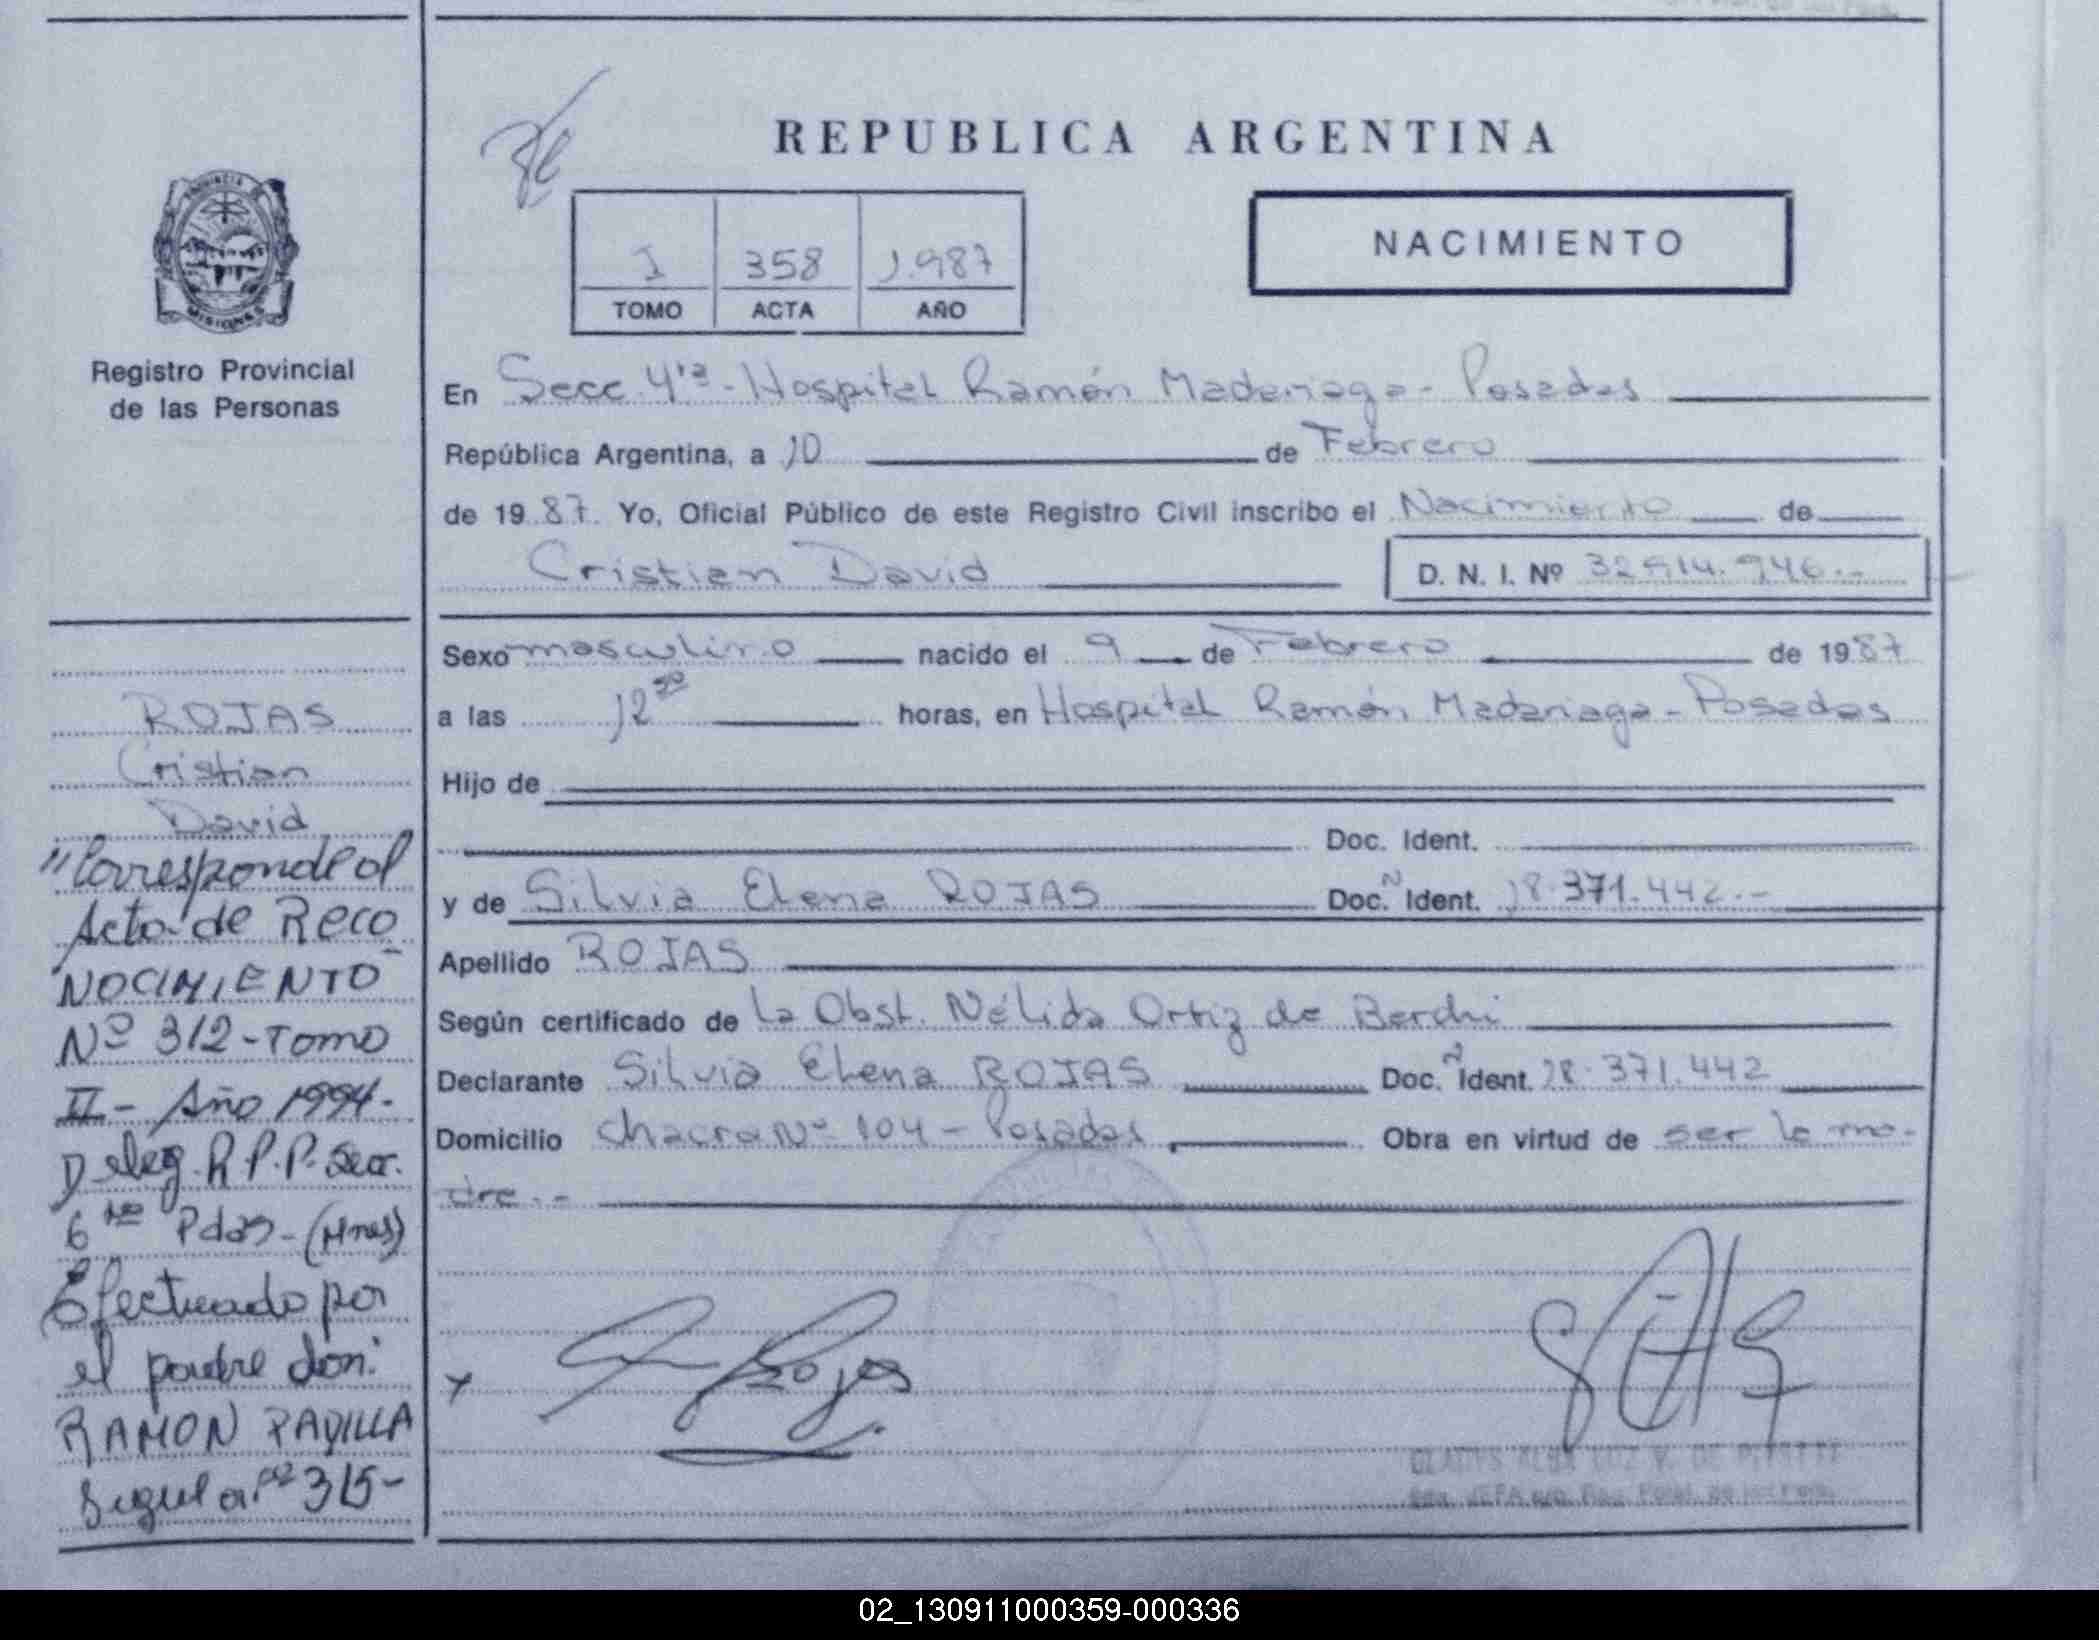 REPUBLICA ARGENTINA
NACIMIENTO
I 358 1.987
TOMO ACTA AÑO
PROVINCIA DE
MISIONES
Registro Provincial
de las Personas
En Secc. 4ta - Hospital Ramón Madariaga - Posadas
República Argentina, a 10 de Febrero
de 1987. Yo, Oficial Público de este Registro Civil inscribo el Nacimiento de
Cristian David D. N. I. Nº 32.914.946.-
Sexo masculino nacido el 9 de Febrero de 1987
a las 12 horas, en Hospital Ramón Madariaga - Posadas
Hijo de
Doc. Ident.
y de Silvia Elena ROJAS Doc. N Ident. 18.371.442.-
Apellido ROJAS
Según certificado de la Obst. Nélida Ortiz de Berchi
Declarante Silvia Elena ROJAS Doc. N Ident. 18.371.442
Domicilio Chacra Nº 104 - Posadas, Obra en virtud de ser la ma-
dre.-
Rojas
ROJAS
Cristian
David
"Corresponde al
Acta de Reco
NOCIMIENTO
Nº 312 - Tomo
II - Año 1994.
Deleg. R.P.P. Secc.
6 Pdas - (Mnes)
Efectuado por
el padre don:
RAMON PADILLA
Según a. 315-
02_130911000359-000336